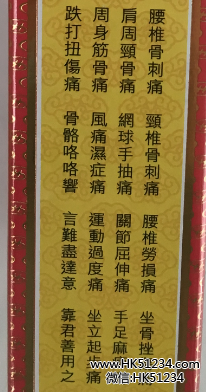 腰椎骨刺痛　頸椎骨刺痛　腰椎勞損痛　坐骨挫
肩周頸骨痛　網球手抽痛　關節屈伸痛　手足麻
周身筋骨痛　風痛濕症痛　運動過度痛　坐立起步痛
跌打扭傷痛　骨骼咯咯響　言難盡達意　靠君善用之
www.HK51234.com
微信:HK51234